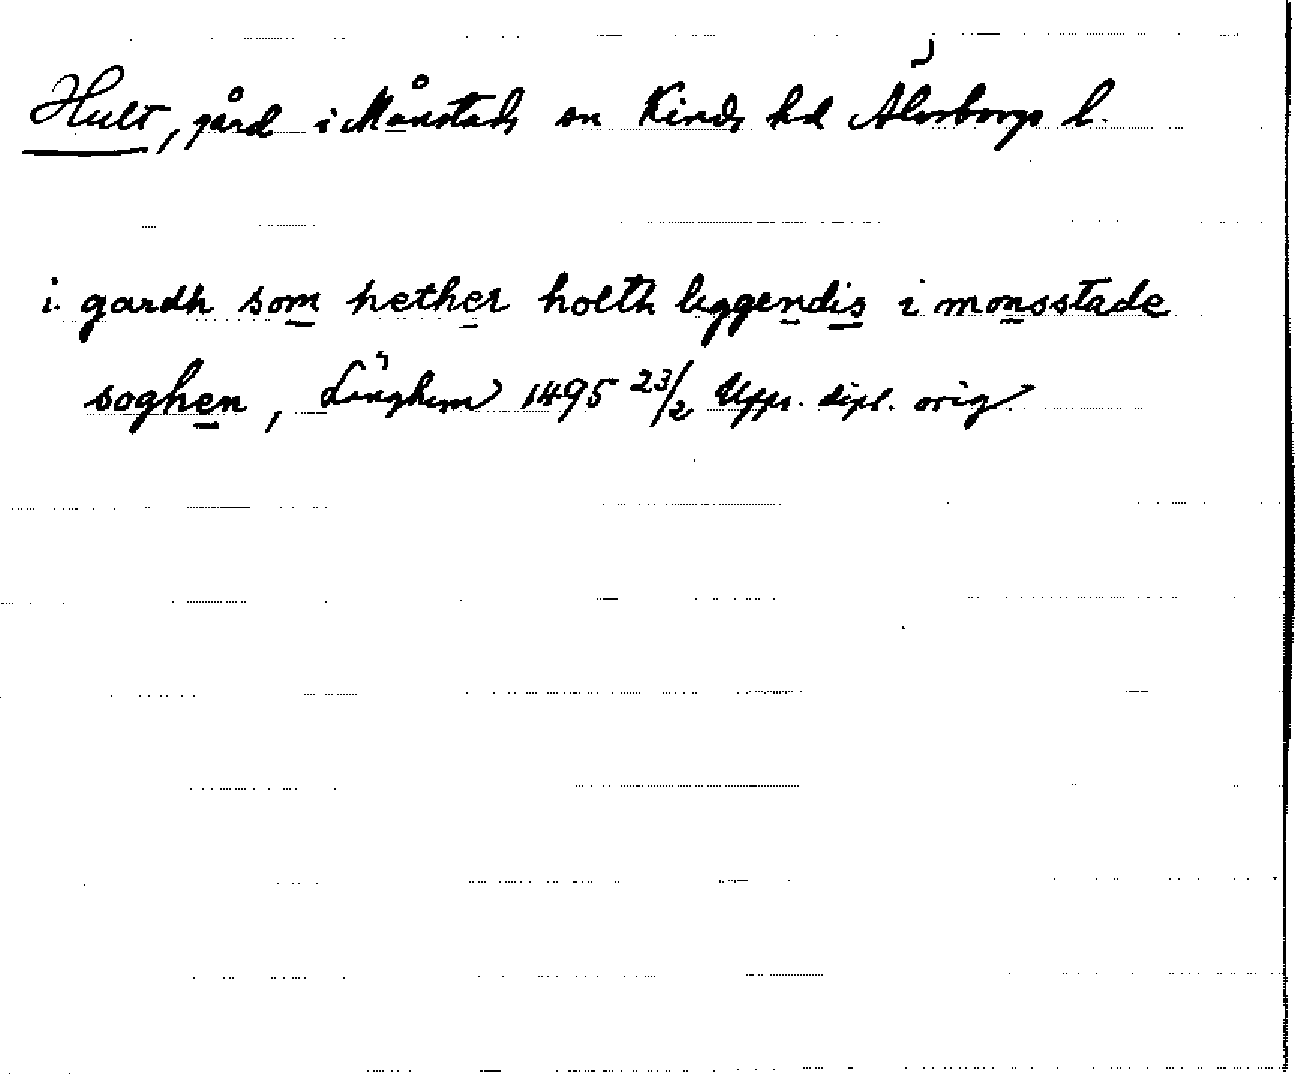 Hult, gård i Månstads sn Kinds hd Älvsborgs l.
i gardh som hether holth liggendis i monsstade
soghen, Långhem 1495 23/2 Upps. dipl. orig